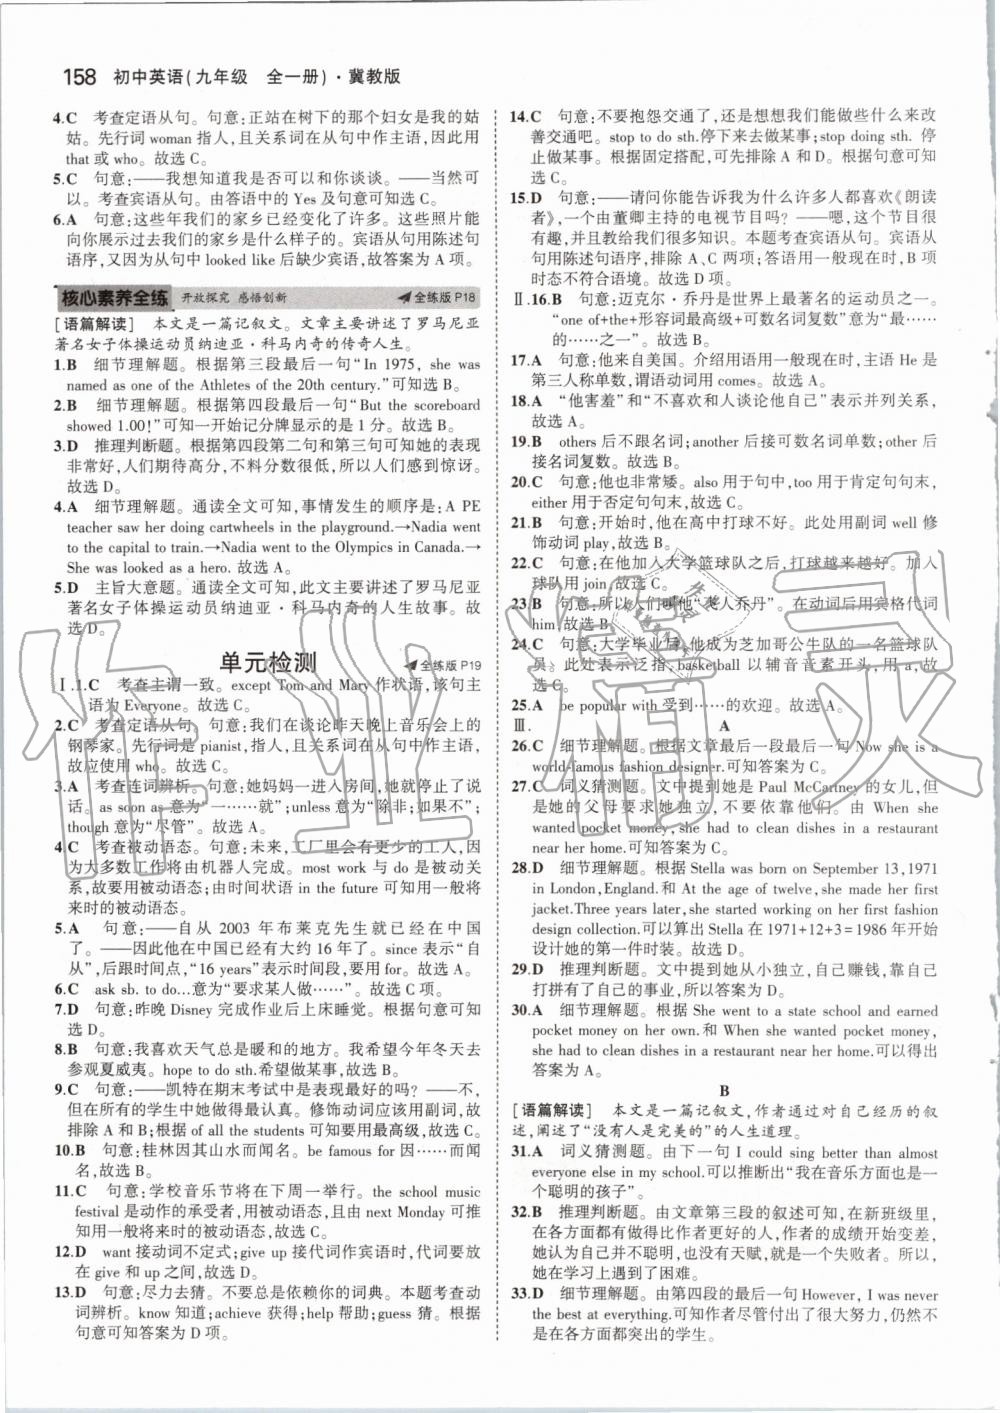 158 初中英语(九年级 全一册)·冀教版
4.C 考查定语从句。句意:正站在树下的那个妇女是我的姑
姑。先行词 woman 指人,且关系词在从句中作主语,因此用
that 或 who。故选 C。
5.C 句意:——我想知道我是否可以和你谈谈。——当然可
以。考查宾语从句。由答语中的 Yes 及句意可知选 C。
6.A 句意:这些年我们的家乡已经变化了许多。这些照片能
向你展示过去我们的家乡是什么样子的。宾语从句用陈述句
语序,又因为从句中 looked like 后缺少宾语,故答案为 A 项。
核心素养全练 开放探究 感悟创新 全练版 P18
[语篇解读] 本文是一篇记叙文。文章主要讲述了罗马尼亚
著名女子体操运动员纳迪亚·科马内奇的传奇人生。
1.B 细节理解题。根据第三段最后一句“In 1975, she was
named as one of the Athletes of the 20th century.”可知选 B。
2.B 细节理解题。根据第四段最后一句“But the scoreboard
showed 1.00!”可知一开始记分牌显示的是 1 分。故选 B。
3.D 推理判断题。根据第四段第二句和第三句可知她的表现
非常好,人们期待高分,不料分数很低,所以人们感到惊讶。
故选 D。
4.A 细节理解题。通读全文可知,事情发生的顺序是:A PE
teacher saw her doing cartwheels in the playground.→Nadia went
to the capital to train.→Nadia went to the Olympics in Canada.→
She was looked as a hero. 故选 A。
5.D 主旨大意题。通读全文可知,此文主要讲述了罗马尼亚
著名女子体操运动员纳迪亚·科马内奇的人生故事。故
选 D。
单元检测 全练版 P19
Ⅰ.1.C 考查主谓一致。except Tom and Mary 作状语,该句主
语为 Everyone。故选 C。
2.C 考查定语从句。句意:我们在谈论昨天晚上音乐会上的
钢琴家。先行词是 pianist,指人,且关系词在从句中作主语,
故应使用 who。故选 C。
3.A 考查连词辨析。句意:她妈妈一进入房间,她就停止了说
话。as soon as 意为“一……就”;unless 意为“除非;如果不”;
though 意为“尽管”。故选 A。
4.C 考查被动语态。句意:未来,工厂里会有更少的工人,因
为大多数工作将由机器人完成。most work 与 do 是被动关
系,故要用被动语态;由时间状语 in the future 可知用一般将
来时的被动语态。故选 C。
5.A 句意:——自从 2003 年布莱克先生就已经在中国
了。——因此他在中国已经有大约 16 年了。since 表示“自
从”,后跟时间点,“16 years”表示时间段,要用 for。故选 A。
6.C ask sb. to do…意为“要求某人做……”。故选 C 项。
7.D 句意:昨晚 Disney 完成作业后上床睡觉。根据句意可知
选 D。
8.B 句意:我喜欢天气总是暖和的地方。我希望今年冬天去
参观夏威夷。hope to do sth.希望做某事。故选 B。
9.C 句意:——凯特在期末考试中是表现最好的吗? ——不,
但在所有的学生中她做得最认真。修饰动词应该用副词,故
排除 A 和 B;根据 of all the students 可知要用最高级,故选 C。
10.B 句意:桂林因其山水而闻名。be famous for 因……而闻
名,故选 B。
11.C 句意:学校音乐节将在下周一举行。the school music
festival 是动作的承受者,用被动语态,且由 next Monday 可推
知用一般将来时的被动语态,故选 C。
12.D want 接动词不定式;give up 接代词作宾语时,代词要放
在 give 和 up 之间,故选 D。
13.D 句意:尽力去猜。不要总是依赖你的词典。本题考查动
词辨析。know 知道;achieve 获得;help 帮助;guess 猜。根据
句意可知答案为 D 项。
14.C 句意:不要抱怨交通了,还是想想我们能做些什么来改
善交通吧。stop to do sth.停下来去做某事;stop doing sth. 停
止做某事。根据固定搭配,可先排除 A 和 D。根据句意可知
选 C。
15.D 句意:——请问你能告诉我为什么许多人都喜欢《朗读
者》,一个由董卿主持的电视节目吗? ——嗯,这个节目很
有趣,并且教给我们很多知识。本题考查宾语从句。宾语从
句用陈述句语序,排除 A、C 两项;答语是一般现在时,B 项
时态不符合语境。故选 D。
Ⅱ.16.B 句意:迈克尔·乔丹是世界上最著名的运动员之一。
“one of+the+形容词最高级+可数名词复数”意为“最……
的……之一”,故选 B。
17.A 句意:他来自美国。介绍用语用一般现在时,主语 He 是
第三人称单数,谓语动词用 comes。故选 A。
18.A “他害羞”和“不喜欢和人谈论他自己”表示并列关系,
故选 A。
19.B others 后不跟名词;another 后接可数名词单数;other 后
接名词复数。故选 B。
20.C 句意:他也非常矮。also 用于句中,too 用于肯定句句末,
either 用于否定句句末,故选 C。
21.B 句意:开始时,他在高中打球不好。此处用副词 well 修
饰动词 play,故选 B。
22.C 句意:在他加入大学篮球队之后,打球越来越好。加入
球队用 join,故选 C。
23.B 句意:所以人们叫他“飞人乔丹”。在动词后用宾格代词
him,故选 B。
24.C 句意:大学毕业后,他成为芝加哥公牛队的一名篮球队
员。此处表示泛指,basketball 以辅音音素开头,用 a,故
选 C。
25.A be popular with 受到……的欢迎。故选 A。
Ⅲ. A
26.C 细节理解题。根据文章最后一段最后一句 Now she is a
world-famous fashion designer.可知答案为 C。
27.C 词义猜测题。文中提到她是 Paul McCartney 的女儿,但
是她的父母要求她独立,不要依靠他们。由 When she
wanted pocket money, she had to clean dishes in a restaurant
near her home.可知答案为 C。
28.D 细节理解题。根据 Stella was born on September 13,1971
in London,England.和 At the age of twelve,she made her first
jacket.Three years later,she started working on her first fashion
design collection.可以算出 Stella 在 1971+12+3=1986 年开始
设计她的第一件时装。故选 D。
29.D 推理判断题。文中提到她从小独立,自己赚钱,靠自己
打拼有了自己的事业,所以答案为 D。
30.A 细节理解题。根据 She went to a state school and earned
pocket money on her own.和 When she wanted pocket money,
she had to clean dishes in a restaurant near her home.可以得出
答案为 A。
B
[语篇解读] 本文是一篇记叙文,作者通过对自己经历的叙
述,阐述了“没有人是完美的”的人生道理。
31.A 词义猜测题。由下一句 I could sing better than almost
everyone else in my school.可以推断出“我在音乐方面也是一
个聪明的孩子”。故选 A。
32.B 推理判断题。由文章第三段的叙述可知,在新班级里,
在各方面都有做得比作者更好的人,作者的成绩开始变差,
她认为自己并不聪明,也没有天赋,就是一个失败者。所以,
她在学习上遇到了困难。
33.D 细节理解题。由第四段的最后一句 However, I was never
the best at everything.可知作者尽管付出了很多努力,仍然不
是在各方面都突出的学生。